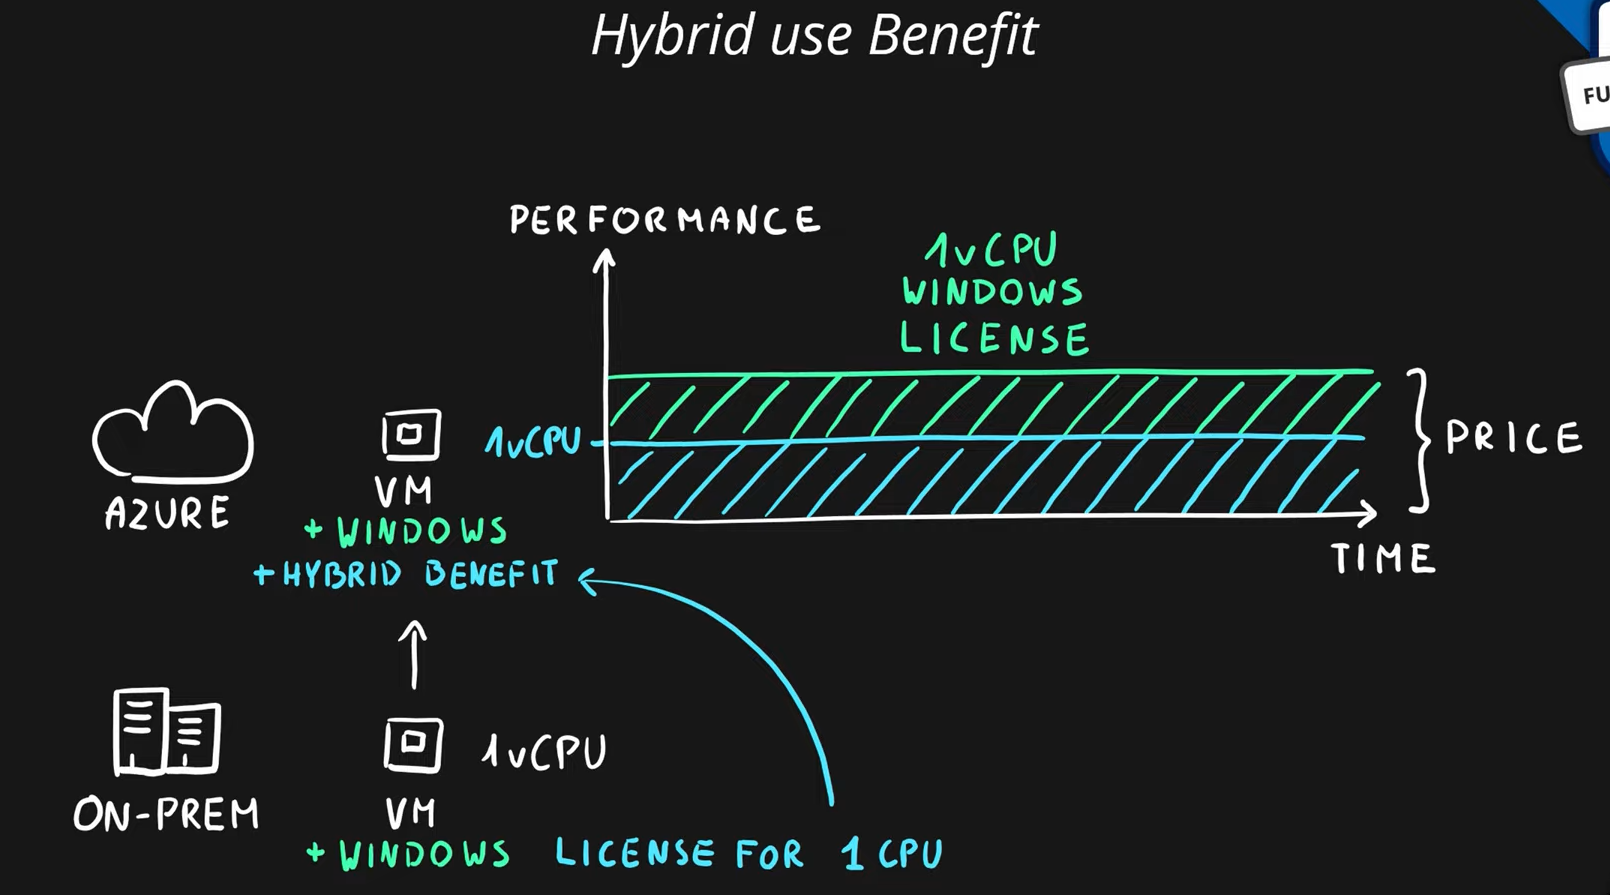 Hybrid use Benefit
FU
PERFORMANCE
1vCPU
WINDOWS
LICENSE
1vCPU
PRICE
AZURE
VM
+ WINDOWS
+ HYBRID BENEFIT
TIME
1vCPU
ON-PREM
VM
+ WINDOWS LICENSE FOR 1 CPU